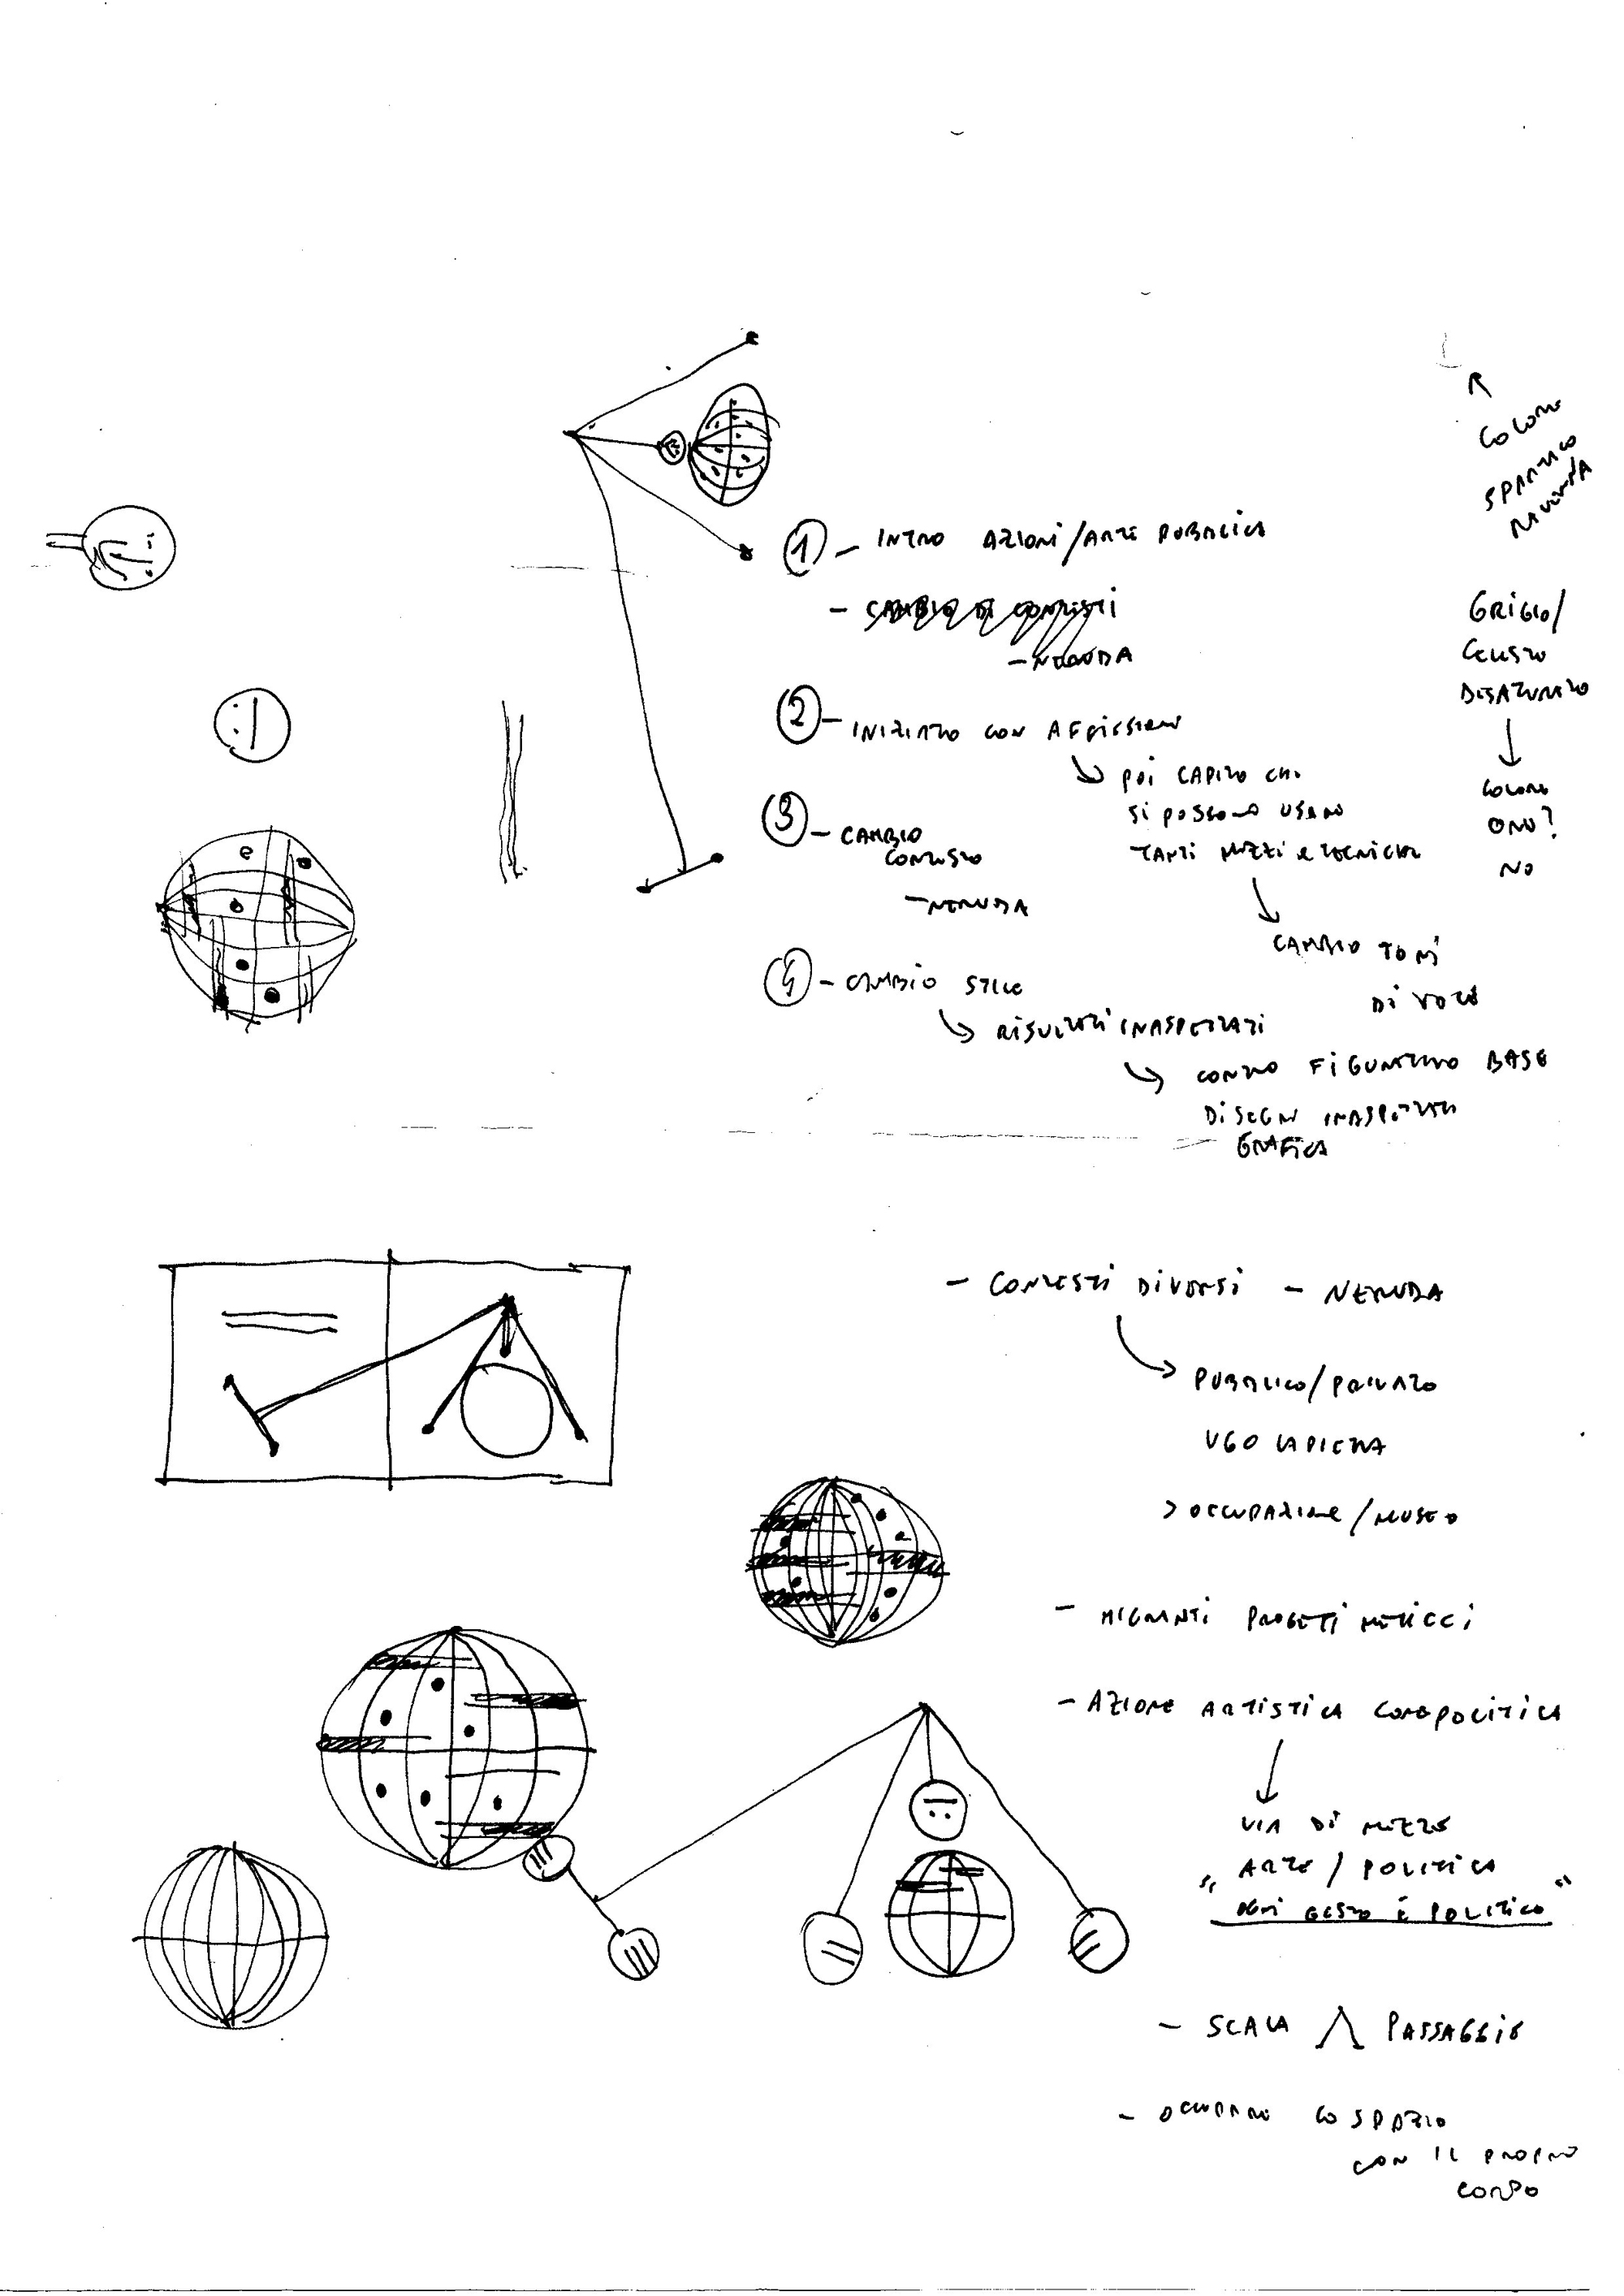 COLORE
SPARTACO
① - INTRO AZIONI/ARTE PUBBLICA
- CAMBIO DI CONTESTI
- NERUDA
GRIGIO/
CELESTE
DISATURATO
COLORE
ORO?
NO
② - INIZIATO CON AFFISSIONI
POI CAPITO CHE
SI POSSONO USARE
TANTI MEZZI E TECNICHE
CAMBIO TONI
DI VOCE
③ - CAMBIO
CONTESTO
- NERUDA
④ - CAMBIO STILE
RISULTATI INASPETTATI
CONTRO FIGURATIVO BASE
DISEGNI INASPETTATI
GRAFICA
- CONTESTI DIVERSI - NERUDA
PUBBLICO/PRIVATO
UGO LA PIETRA
> OCCUPAZIONE/MUSEO
- MIGRANTI PROGETTI METICCI
- AZIONE ARTISTICA COME POLITICA
VIA DI MEZZO
" ARTE / POLITICA
OGNI GESTO È POLITICO "
- SCALA PASSAGGIO
- OCCUPARE LO SPAZIO
CON IL PROPRIO
CORPO